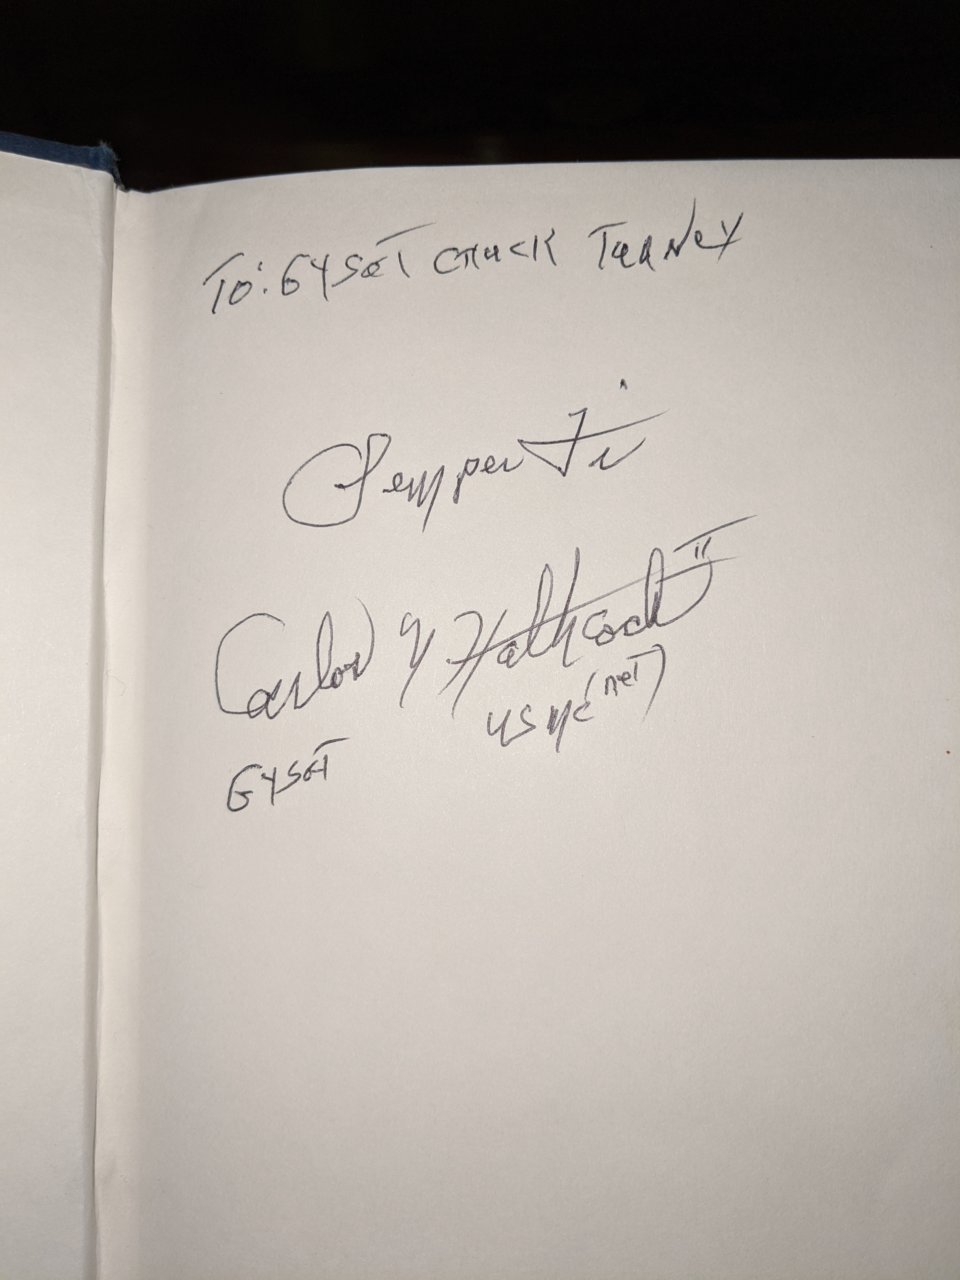 TO: GYSGT CHUCK TURNEY
Semper Fi
Carlos N Hathcock II
USMC (RET)
GYSGT